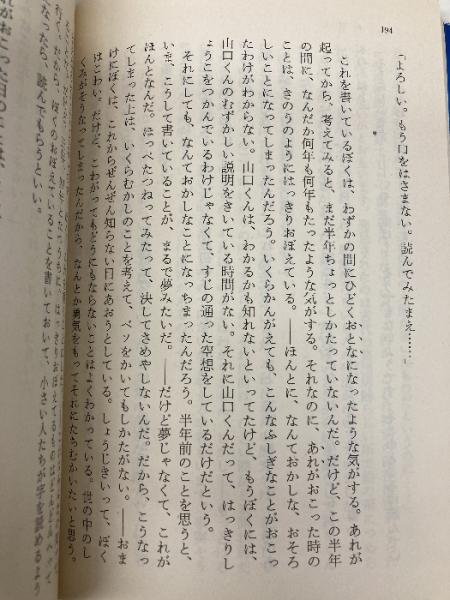 194
「よろしい。もう口をはさまない。読んでみたまえ……」
これを書いているぼくは、わずかの間にひどくおとなになったような気がする。あれが
起ってから、考えてみると、まだ半年ちょっとしかたっていないんだ。だけど、この半年
間に、なんだか何年も何年もたったような気がする。それなのに、あれがおこった時の
ことは、きのうのようにはっきりおぼえている。――ほんとに、なんておかしな、おそろ
しいことになってしまったんだろう。いくらかんがえても、こんなふしぎなことがおこっ
たわけがわからない。山口くんは、わかるかも知れないといってたけど、もうぼくには、
山口くんのむずかしい説明をきいている時間がない。それに山口くんだって、はっきりし
ょうこをつかんでいるわけじゃなくて、すじの通った空想をしているだけだという。
それにしても、なんておかしなことになっちまったんだろう。半年前のことを思うと、
いま、こうして書いていることが、まるで夢みたいだ。――だけど夢じゃなくて、これが
ほんとなんだ。ほっぺたつねってみたって、決してさめやしないんだ。だから、こうなっ
てしまった上は、いくらむかしのことを考えて、ベソをかいてもしかたがない。――おま
けにぼくは、これからぜんぜん知らない日にあおうとしている。しょうじきいって、ぼく
はこわい。だけど、こわがってもどうにもならないことはよくわかっている。世の中のし
くみがそうなってしまったんだから、なんとか勇気をもってそれにたちむかいたいと思う。
ぼくのおぼえてることを書いておいて、小さい人たちが字を読めるよう
になったら、読んでもらうといい。